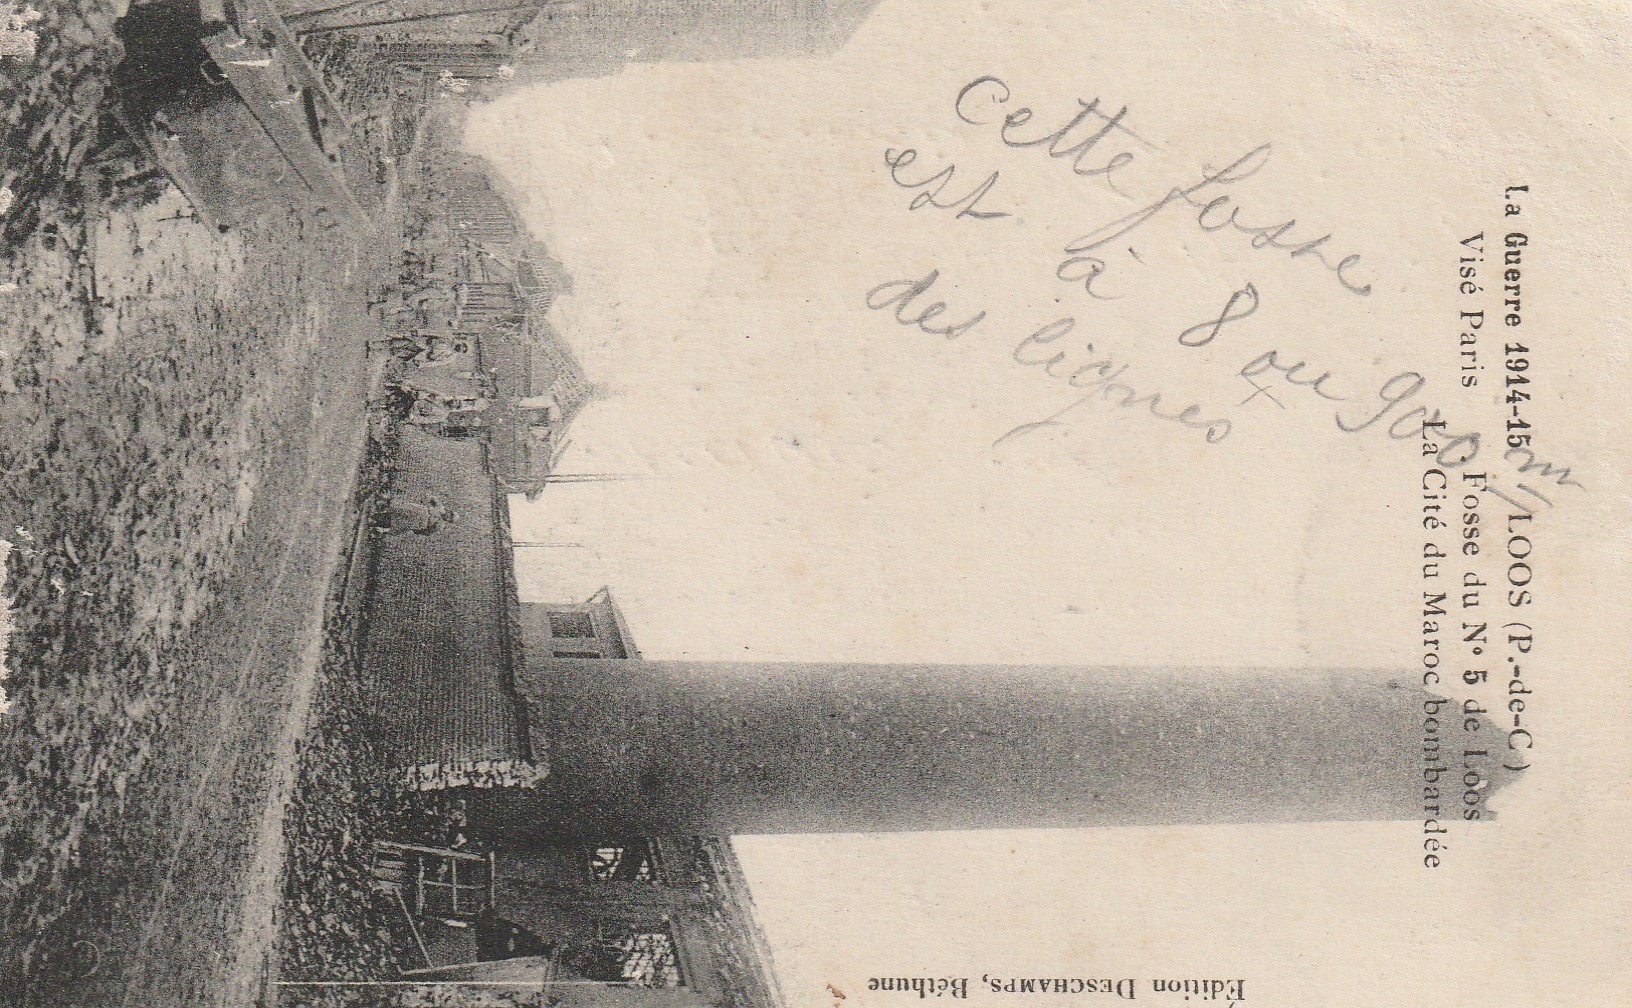 La Guerre 1914-15 LOOS (P.-de-C.)
Visé Paris Fosse du N° 5 de Loos
La Cité du Maroc bombardée
cette fosse
est à 8 ou 900 m
des lignes
Édition DESCHAMPS, Béthune